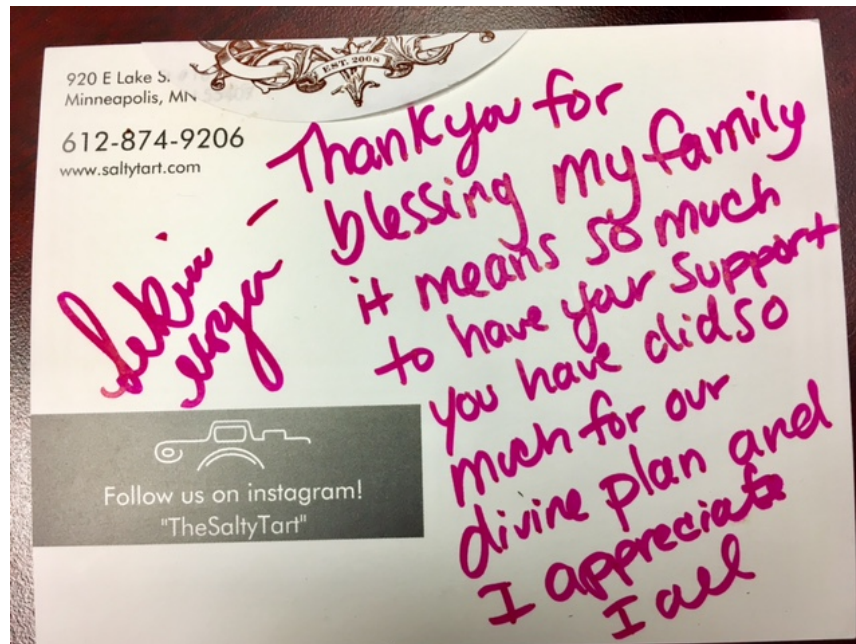 EST. 2008
920 E Lake S
Minneapolis, MN
612-874-9206
www.saltytart.com
Thank you for
blessing my family
it means so much
to have your support
you have did so
much for our
divine plan and
I appreciate
I all
Follow us on instagram!
"TheSaltyTart"